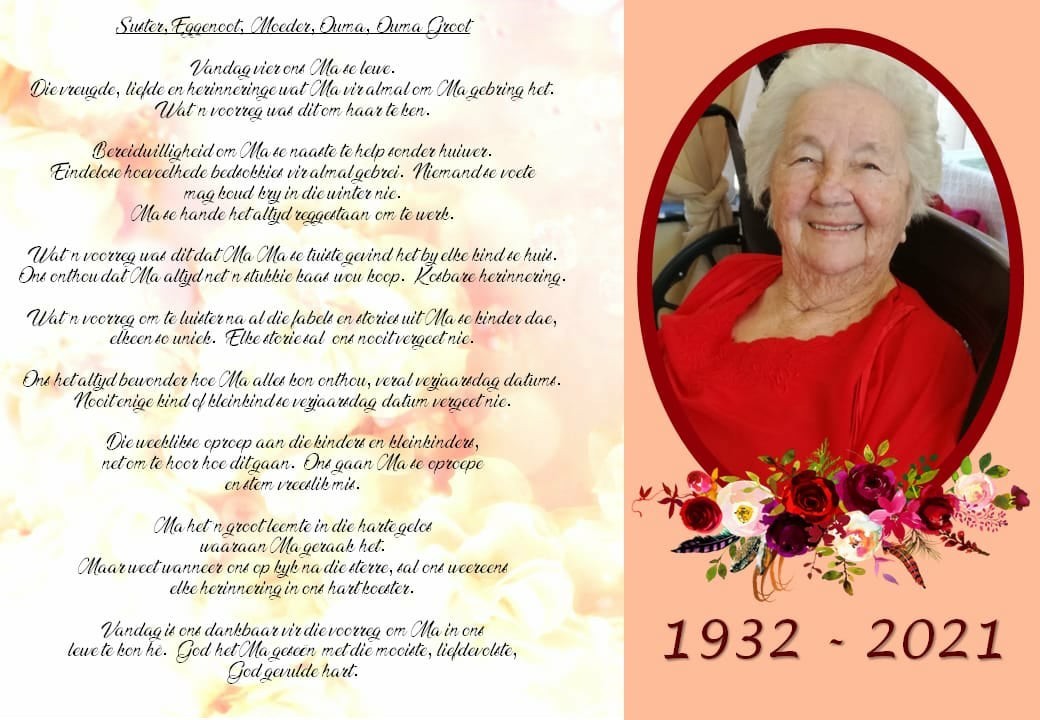 Suster, Eggenoot, Moeder, Ouma, Ouma Groot
Vandag vier ons Ma se lewe.
Die vreugde, liefde en herinneringe wat Ma vir almal om Ma gebring het.
Wat 'n voorreg was dit om haar te ken.
Bereidwilligheid om Ma se naaste te help sonder huiwer.
Eindelose hoeveelhede bedsokkies vir almal gebrei. Niemand se voete
mag koud kry in die winter nie.
Ma se hande het altyd reggestaan om te werk.
Wat 'n voorreg was dit dat Ma Ma se tuiste gevind het by elke kind se huis.
Ons onthou dat Ma altyd net 'n stukkie kaas wou koop. Kosbare herinnering.
Wat 'n voorreg om te luister na al die fabels en stories uit Ma se kinder dae,
elkeen so uniek. Elke storie sal ons nooit vergeet nie.
Ons het altyd bewonder hoe Ma alles kon onthou, veral verjaarsdag datums.
Nooit enige kind of kleinkind se verjaarsdag datum vergeet nie.
Die weeklikse oproep aan die kinders en kleinkinders,
net om te hoor hoe dit gaan. Ons gaan Ma se oproepe
en stem vreeslik mis.
Ma het 'n groot leemte in die harte gelos
waaraan Ma geraak het.
Maar weet wanneer ons op kyk na die sterre, sal ons weereens
elke herinnering in ons hart koester.
Vandag is ons dankbaar vir die voorreg om Ma in ons
lewe te kon hê. God het Ma geseën met die mooiste, liefdevolste,
God gevulde hart.
1932 - 2021